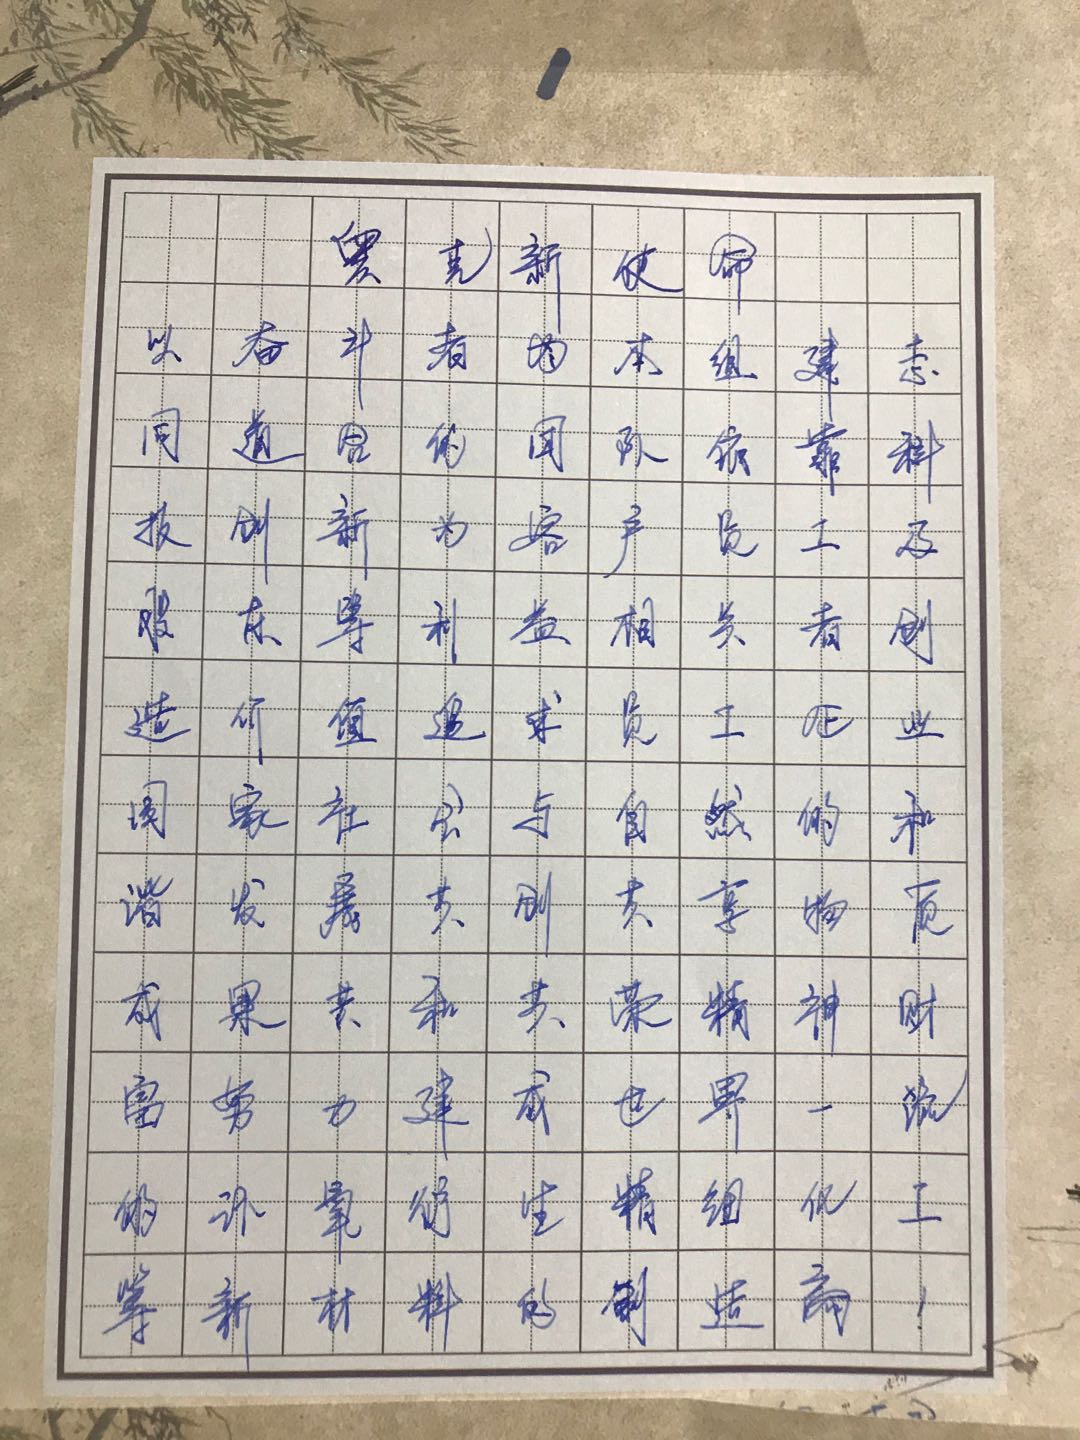 奥克新使命
以奋斗者为本组建志
同道合的团队依靠科
技创新为客户员工及
股东等利益相关者创
造价值追求员工企业
国家社会与自然的和
谐发展共创共享物质
成果共和共荣精神财
富努力建成世界一流
的环氧衍生精细化工
等新材料的制造商！